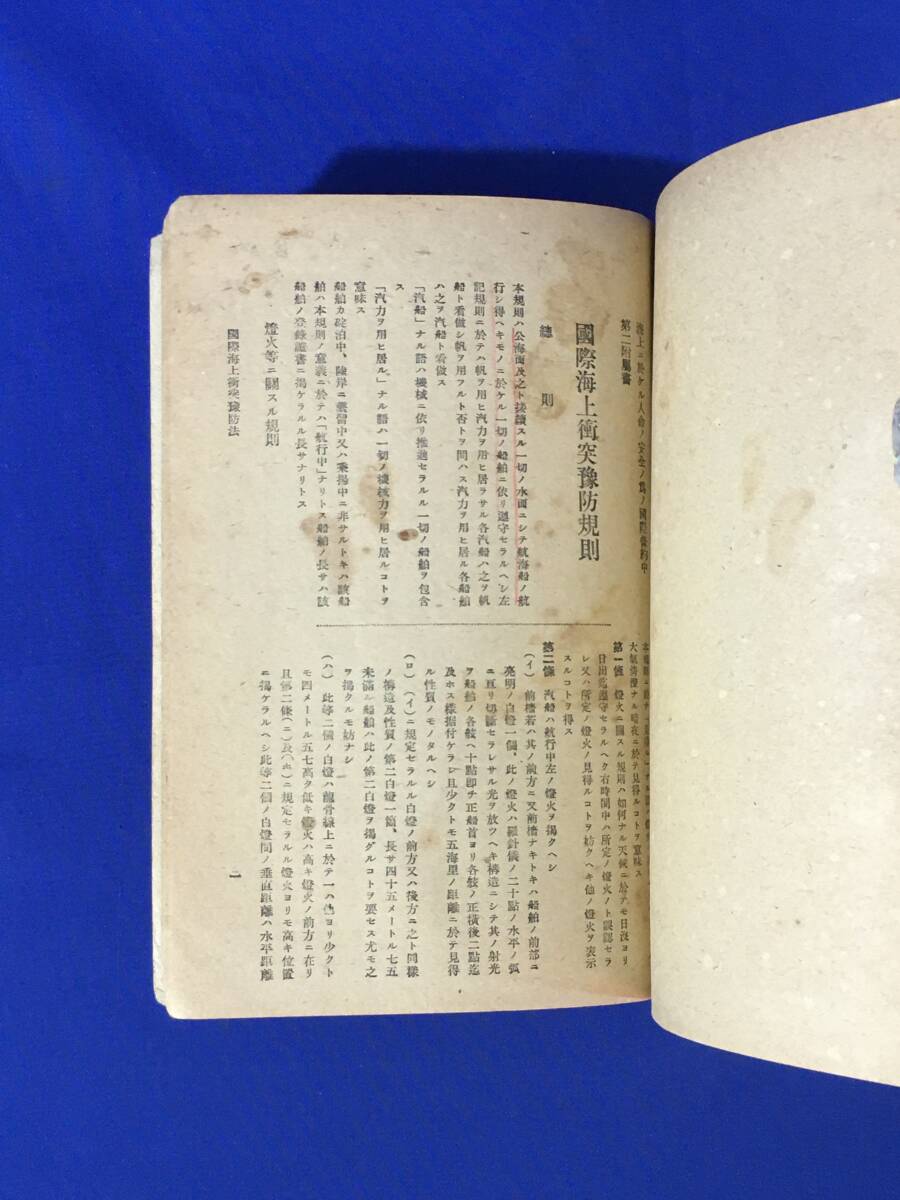 海上ニ於ケル人命ノ安全ノ爲ノ國際條約中
第二附屬書
國際海上衝突豫防規則
總則
本規則ハ公海面及之ト接續スル一切ノ水面ニシテ航海船ノ航
行シ得ヘキモノニ於ケル一切ノ船舶ニ依リ遵守セラルヘシ左
記規則ニ於テハ帆ヲ用ヒ汽力ヲ用ヒ居ラサル各汽船ハ之ヲ帆
船ト看做シ帆ヲ用フルト否トヲ問ハス汽力ヲ用ヒ居ル各船舶
ハ之ヲ汽船ト看做ス
「汽船」ナル語ハ機械ニ依リ推進セラルル一切ノ船舶ヲ包含
ス
「汽力ヲ用ヒ居ル」ナル語ハ一切ノ機械力ヲ用ヒ居ルコトヲ
意味ス
船舶カ碇泊中、陸岸ニ繋留中又ハ乘揚中ニ非サルトキハ該船
舶ハ本規則ノ意義ニ於テハ「航行中」ナリトス船舶ノ長サハ該
船舶ノ登錄證書ニ揭ケラルル長サナリトス
燈火等ニ關スル規則
大氣淸澄ナル暗夜ニ於テ見得ルコトヲ意味ス
第一條 燈火ニ關スル規則ハ如何ナル天候ニ於テモ日沒ヨリ
日出迄遵守セラルヘク右時間中ハ所定ノ燈火ノト誤認セラ
レ又ハ所定ノ燈火ノ見得ルコトヲ妨クヘキ他ノ燈火ヲ表示
スルコトヲ得ス
第二條 汽船ハ航行中左ノ燈火ヲ揭クヘシ
(イ) 前檣若ハ其ノ前方ニ又前檣ナキトキハ船舶ノ前部ニ
亮明ノ白燈一個、此ノ燈火ハ羅針儀ノ二十點ノ水平ノ弧
ニ亙リ切斷セラレサル光ヲ放ツヘキ構造ニシテ其ノ射光
ヲ船ノ各舷ヘ十點卽チ正船首ヨリ各舷ノ正橫後二點迄
及ホス樣据付ケラレ且少クトモ五海里ノ距離ニ於テ見得
ル性質ノモノタルヘシ
(ロ) (イ)ニ規定セラルル白燈ノ前方又ハ後方ニ之ト同樣
ノ構造及性質ノ第二白燈一箇、長サ四十五メートル七五
未滿ノ船舶ハ此ノ第二白燈ヲ揭グルコトヲ要セス尤モ之
ヲ揭クルモ妨ナシ
(ハ) 此等二個ノ白燈ハ龍骨線上ニ於テ一ハ他ヨリ少クト
モ四メートル五七高ク低キ燈火ハ高キ燈火ノ前方ニ在リ
且第二條(ニ)及(ホ)ニ規定セラルル燈火ヨリモ高キ位置
ニ揭ケラルヘシ此等二個ノ白燈間ノ垂直距離ハ水平距離
國際海上衝突豫防法
二